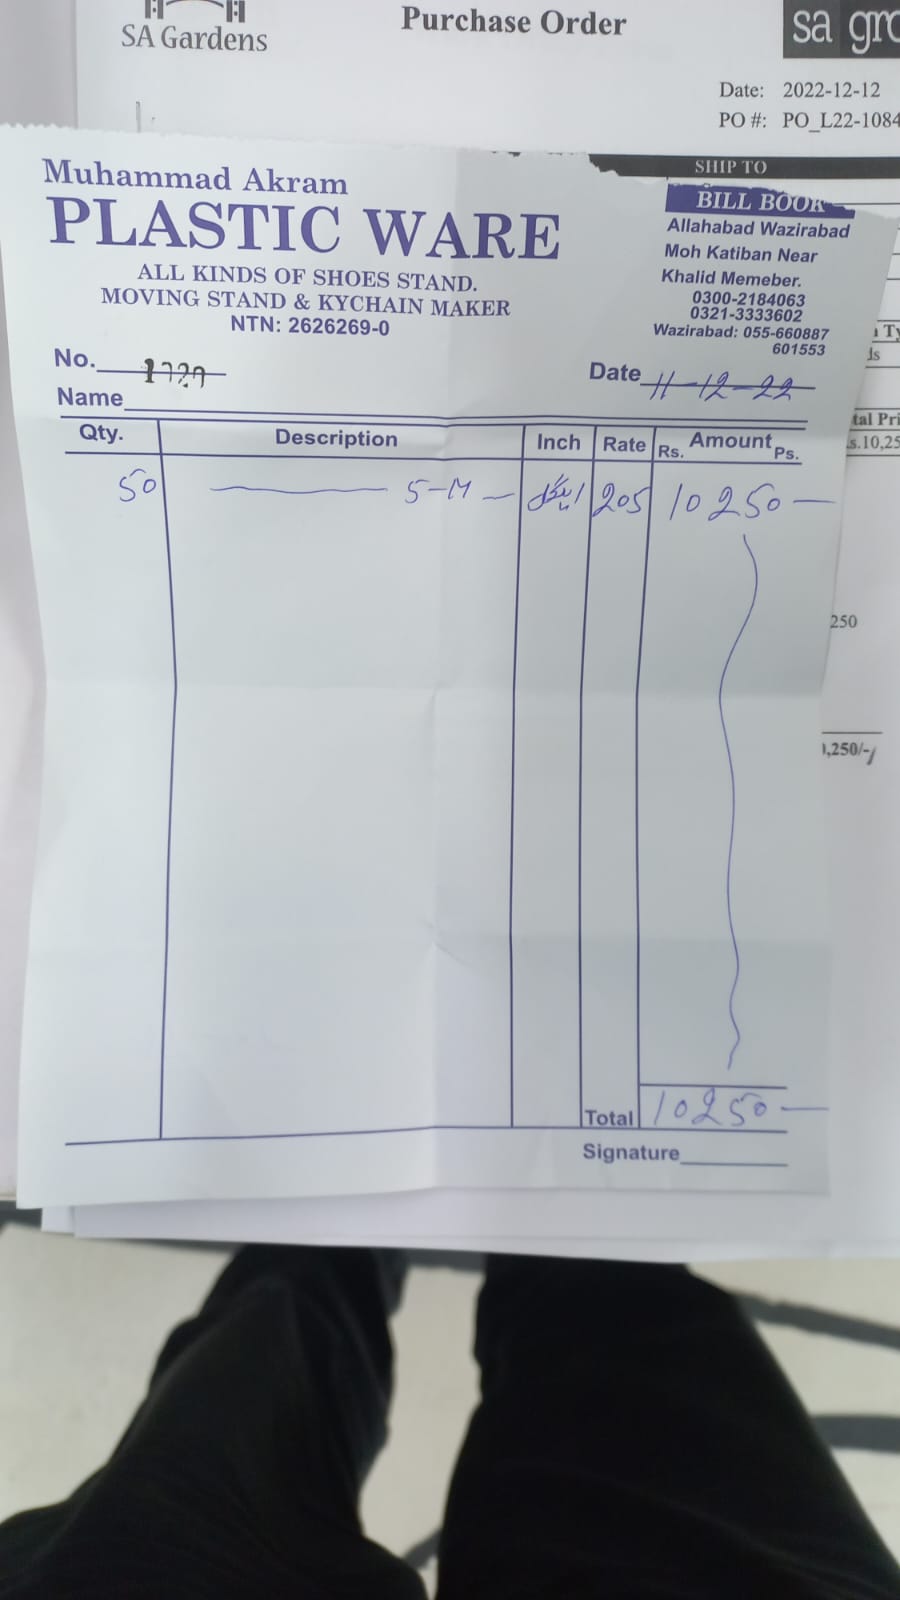 SA Gardens
Purchase Order
sa gro
Date: 2022-12-12
PO #: PO_L22-1084
SHIP TO
Muhammad Akram
PLASTIC WARE
ALL KINDS OF SHOES STAND.
MOVING STAND & KYCHAIN MAKER
NTN: 2626269-0
BILL BOOK
Allahabad Wazirabad
Moh Katiban Near
Khalid Memeber.
0300-2184063
0321-3333602
Wazirabad: 055-660887
601553
No.
Date 11-12-22
Name
Qty. Description Inch Rate Rs. Amount Ps.
50 5-M 205 10250
Total 10250
Signature
tal Pri
s.10,25
250
,250/-